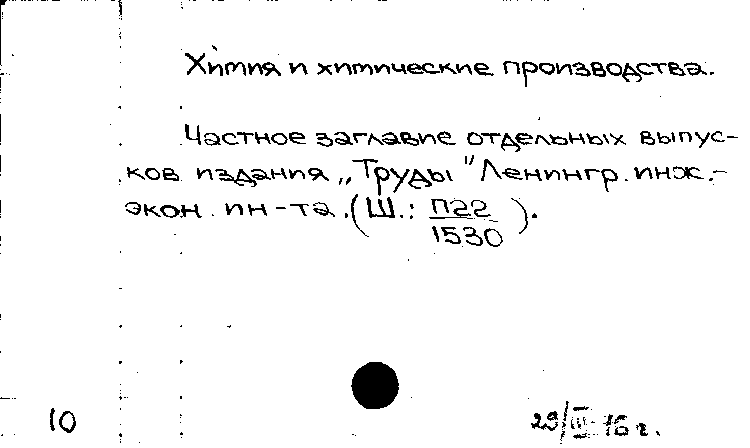 Химия и химические производства.
Частное заглавие отдельных выпус-
ков издания „Труды" Ленингр. инж.-
экон. ин-та. (Ш.: П22
1530).
10
29/III-16 г.